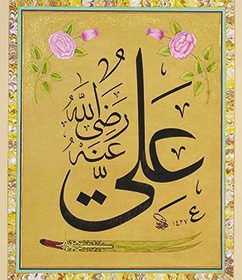 عَلِيّ
رَضِيَ اللّٰهُ
عَنْهُ
ع
١٤٢٧